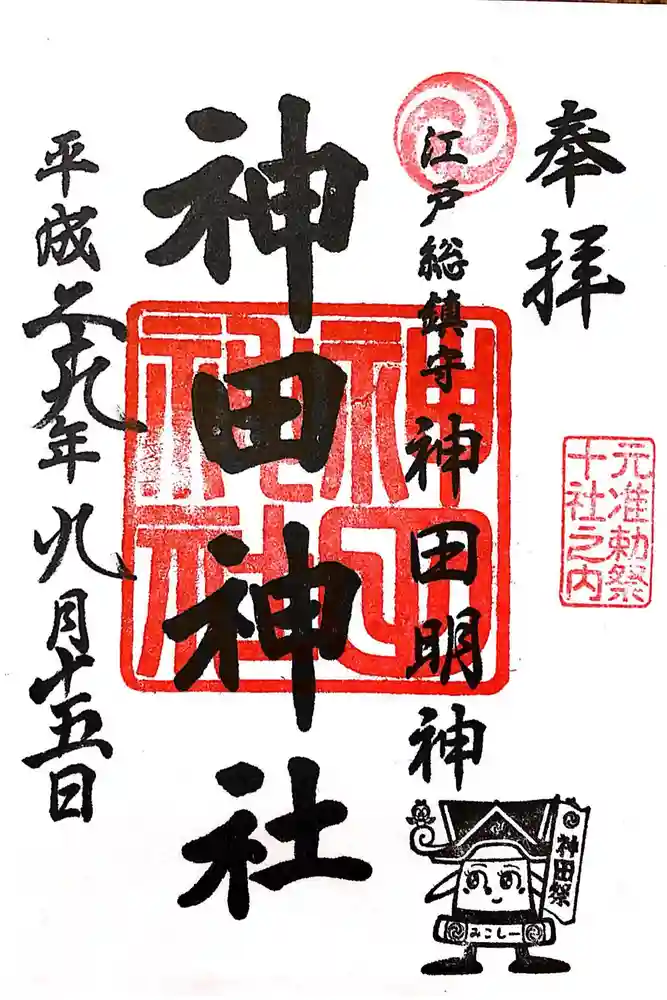 奉拝
元准勅祭
十社之内
江戸総鎮守神田明神
神田神社
神田神社
平成二十九年九月十五日
神田祭
みこしー